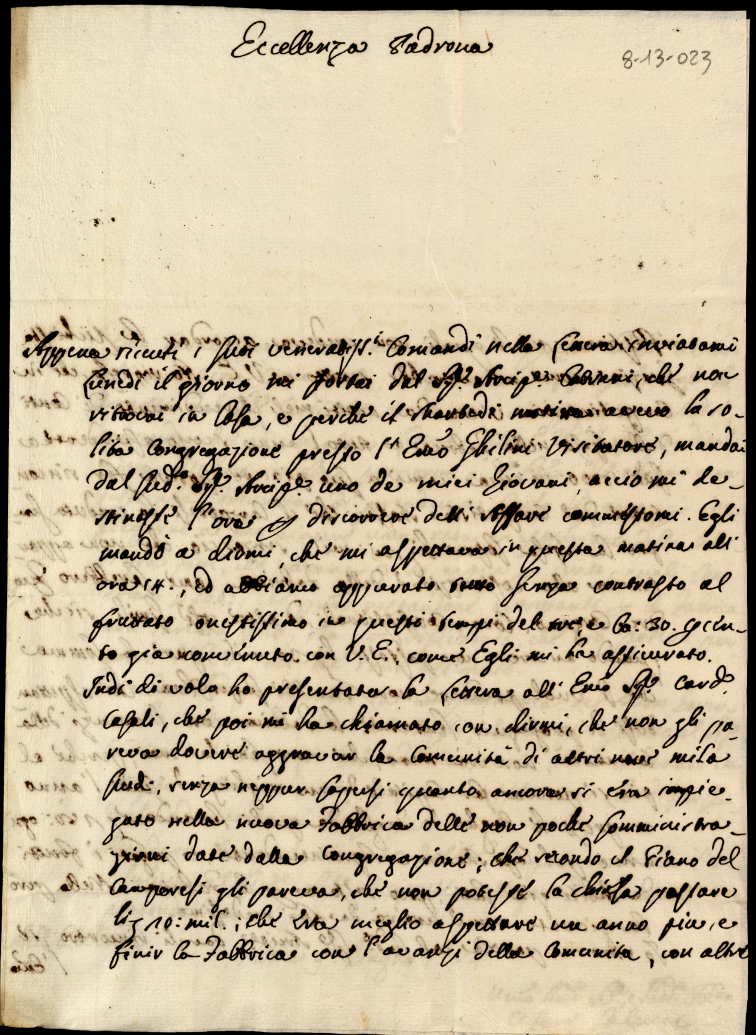 Eccellenza Padrona
8-13-023
Appena ricevuti i suoi veneratiss.i Comandi nella lettera inviatami
Lunedì il giorno mi portai dal Sig.r Arcip.e che non
ritrovai in Casa, e perchè il Martedì matina avevo la so-
lita Congregazione presso l'Emo Ghilini Visitatore, mandai
dal sud.o Sig.r Arcip.e uno de miei Giovani, acciò mi de-
stinasse l'ora discorrere dell'Affare commessomi. Egli
mandò a dirmi, che mi aspettava in questa matina all'
ora 14., ed abbiamo appurato tutto senza contrasto al
fruttato onestissimo in questi tempi del tre, e b: 30. cen-
to già convenuto con V. E., come Egli mi ha assicurato.
Indi di volo ho presentata la lettera all'Emo Sig.r Card.
Casali, che poi mi ha chiamato con dirmi, che non gli pa-
reva dovere aggravar la Comunità di altri nove mila
scudi, senza neppur sapersi quanto ancora si era impie-
gato nella nuova Fabbrica delle non poche somministra-
zioni date dalla Congregazione; che secondo il Piano del
Camporesi gli pareva, che non potesse la chiesa passare
li 10: mil.; che era meglio aspettare un anno più, e
finir la Fabbrica con l'avanzi della Comunità, con altre